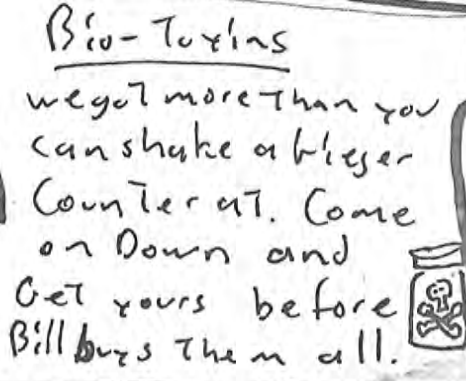 Bio-Toxins
we got more than you
can shake a Gieger
Counter at. Come
on Down and
Get yours before
Bill buys them all.